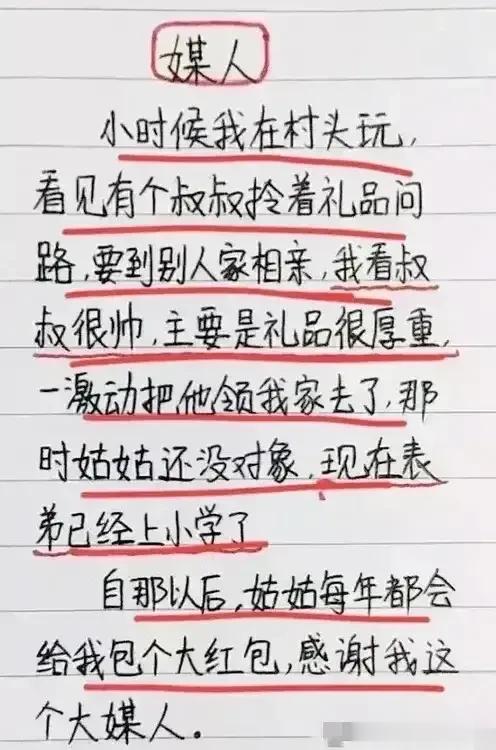 媒人
小时候我在村头玩，
看见有个叔叔拎着礼品问
路，要到别人家相亲，我看叔
叔很帅，主要是礼品很厚重，
一激动把他领我家去了，那
时姑姑还没对象，现在表
弟已经上小学了
自那以后，姑姑每年都会
给我包个大红包，感谢我这
个大媒人。